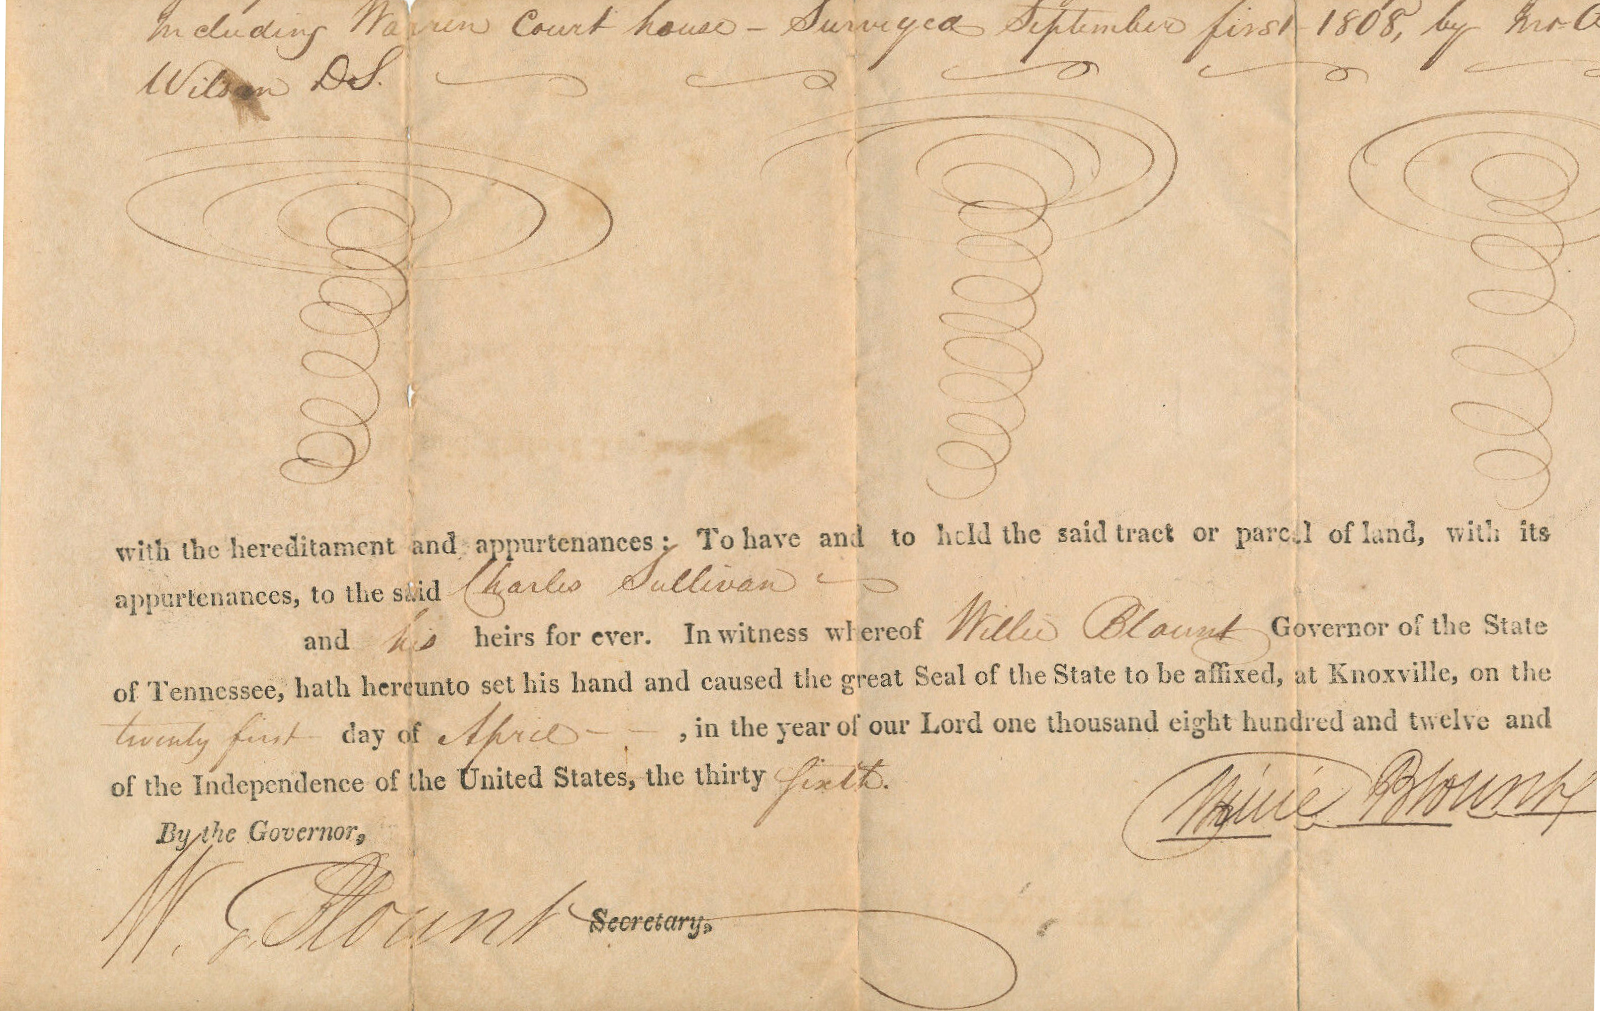 including Warren Court house – Surveyed September first 1808, by Jno.
Wilson D.S.
with the hereditament and appurtenances: To have and to hold the said tract or parcel of land, with its
appurtenances, to the said Charles Sullivan
and his heirs for ever. In witness whereof Willie Blount Governor of the State
of Tennessee, hath hereunto set his hand and caused the great Seal of the State to be affixed, at Knoxville, on the
twenty first day of April – – , in the year of our Lord one thousand eight hundred and twelve and
of the Independence of the United States, the thirty sixth.
Willie Blount
By the Governor,
W. G. Blount Secretary,